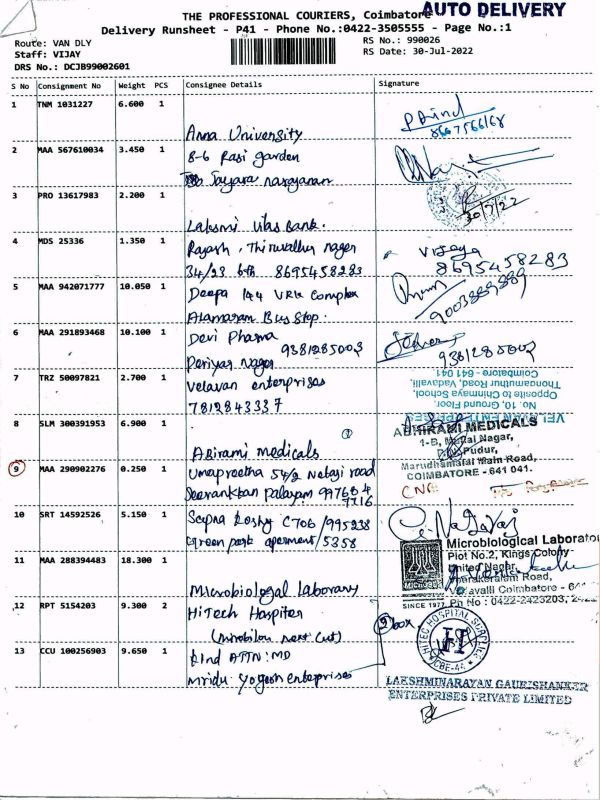 AUTO DELIVERY
THE PROFESSIONAL COURIERS, Coimbatore
Delivery Runsheet - P41 - Phone No.:0422-3505555 - Page No.:1
Route: VAN DLY
RS No.: 990026
Staff: VIJAY
RS Date: 30-Jul-2022
DRS No.: DCJB99002601
S No Consignment No Weight PCS Consignee Details Signature
1 TNM 1031227 6.600 1
Anna University
8667566168
2 MAA 567610034 3.450 1 8-6 Rasi garden
Jayara narayanan
3 PRO 13617983 2.200 1
30/7/22
Lakshmi Vilas Bank.
4 MDS 25336 1.350 1 Rajash, Thiruvallur nager
34/23 6th 8695458283
Vijaya
8695458283
5 MAA 942071777 10.050 1 Deepa 144 VRK Complex
Alamaram Bus Stop.
9003889889
6 MAA 291893468 10.100 1 Devi Pharma
Periyar Nager 9381285003
9381285002
7 TRZ 50097821 2.700 1 Velavan enterprises
7812843337
VELAVAN ENTERPRISES
No. 10, Ground Floor,
Opposite to Chinmaya School,
Thondamuthur Road, Vadavalli,
Coimbatore - 641 041
8 SLM 300391953 6.900 1
Abirami medicals
ABIRAMI MEDICALS
1-B, Nagar,
Pudur,
Marudhamalai Main Road,
COIMBATORE - 641 041.
9 MAA 290902276 0.250 1 Umapreetha 54/2 Netaji road
Palayam 997684
7716
CNA
10 SRT 14592526 5.150 1 Sapna Koshy C706/995238
Green park aparment/5358
11 MAA 288394483 18.300 1
Microbiologal Laborary
Microbiological Laborato
Plot No.2, Kings Colony
United Nagar,
Road,
Coimbatore - 64
SINCE 1977 Ph No : 0422-2423203, 2
12 RPT 5154203 9.300 2 HiTech Hospiter
2 box
HITEC HOSPITAL SURPLIES
CBE-44
13 CCU 100256903 9.650 1 kind ATTN: MD
Mridu Yogesh enterprises
LAKSHMINARAYAN GAURISHANKER
ENTERPRISES PRIVATE LIMITED